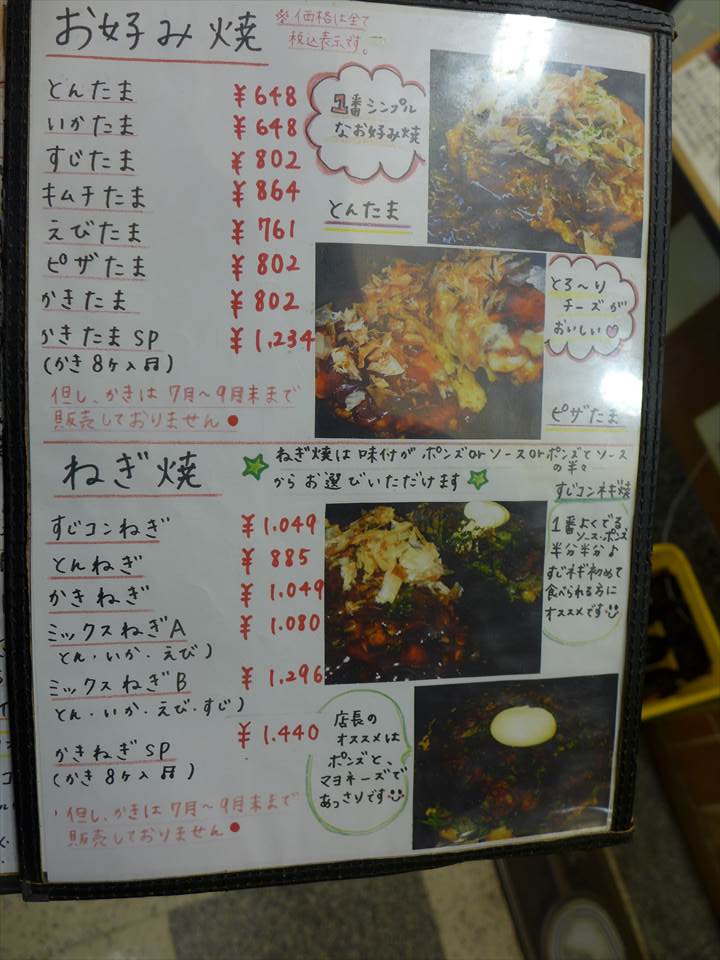 お好み焼
※価格は全て
税込表示です。
とんたま ¥648
いかたま ¥648
すじたま ¥802
キムチたま ¥864
えびたま ¥761
ピザたま ¥802
かきたま ¥802
かきたまSP ¥1,234
(かき8ヶ入り)
但し、かきは7月〜9月末まで
販売しておりません
1番シンプル
なお好み焼
とんたま
とろ〜り
チーズが
おいしい♡
ピザたま
ねぎ焼
☆ねぎ焼は味付けがポンズorソースorポンズとソース
の半々
からお選びいただけます☆
すじコンねぎ ¥1.049
とんねぎ ¥885
かきねぎ ¥1.049
ミックスねぎA ¥1.080
とん・いか・えび)
ミックスねぎB ¥1.296
とん・いか・えび・すじ)
かきねぎSP ¥1.440
(かき8ヶ入り)
但し、かきは7月〜9月末まで
販売しておりません
すじコンネギ焼
1番よくでる
ソース・ポンズ
半分半分♪
すじネギ初めて
食べられる方に
オススメです
店長の
オススメは
ポンズと、
マヨネーズで
あっさりです